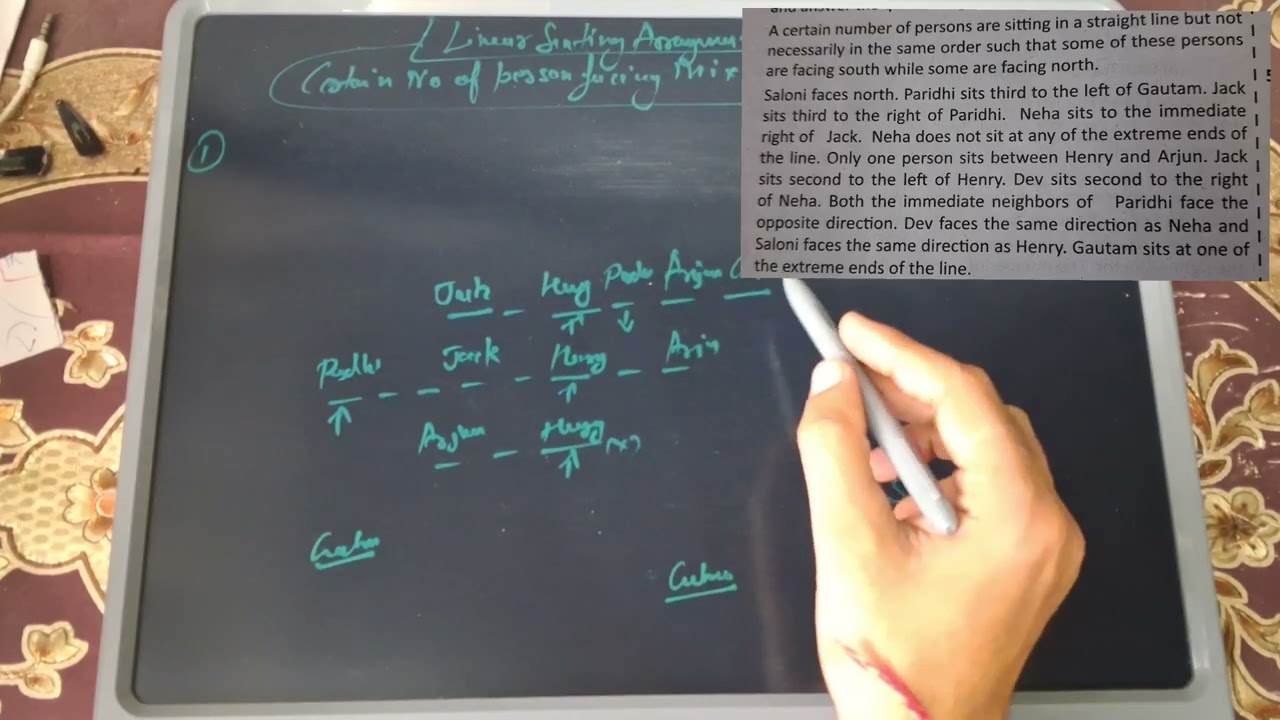 Linear Seating Arrangment
Certain No of person facing Mix
①
A certain number of persons are sitting in a straight line but not
necessarily in the same order such that some of these persons
are facing south while some are facing north.
Saloni faces north. Paridhi sits third to the left of Gautam. Jack
sits third to the right of Paridhi. Neha sits to the immediate
right of Jack. Neha does not sit at any of the extreme ends of
the line. Only one person sits between Henry and Arjun. Jack
sits second to the left of Henry. Dev sits second to the right
of Neha. Both the immediate neighbors of Paridhi face the
opposite direction. Dev faces the same direction as Neha and
Saloni faces the same direction as Henry. Gautam sits at one of
the extreme ends of the line.
Jack Henry Arjun
Jack Henry
Henry (x)